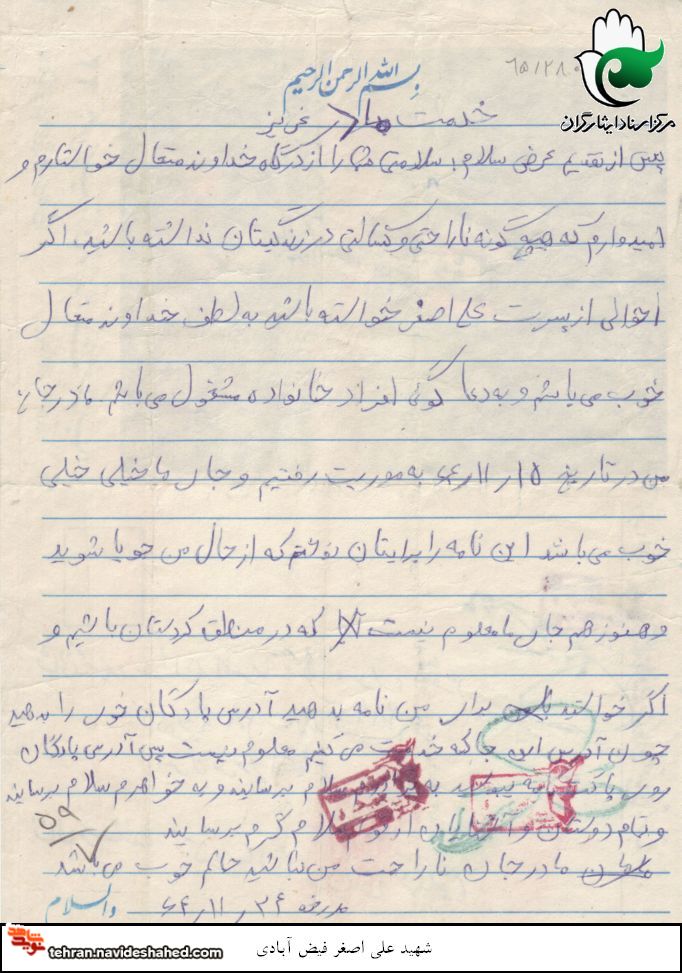 ۶۵/۲۸۰
مرکز اسناد ایثارگران
بسم الله الرحمن الرحیم
خدمت مادر عزیز
پس از تقدیم عرض سلام، سلامتی شما را از درگاه خداوند متعال خواستارم و
امیدوارم که هیچ گونه ناراحتی و کسالتی در زندگیتان نداشته باشید. اگر
احوالی از پسرت علی اصغر خواسته باشید به لطف خداوند متعال
خوب می باشم و به دعا گوئی افراد خانواده مشغول می باشم. مادر جان
من در تاریخ ۱۵ ر ۱۱ ر ۶۴ به موریت رفتیم و جان ما خیلی خیلی
خوب می باشد این نامه را برایتان نوشتم که از حال من جویا شوید
و هنوز هم جان ما معلوم نیست که در مناطق کردستان باشیم و
اگر خواستید برای من نامه بدهید آدرس پادگان خود را بدهید
چون آدرس این جا که خدمت می کنیم معلوم نیست پس آدرس پادگان
روی پاکت سلام برسانید و به خواهرم سلام برسانید
و تمام دوستان و سلام گرم برسانید
مادر جان ناراحت من نباشید حالم خوب می باشد
مورخه ۲۴ ر ۱۱ ر ۶۴ والسلام
۵۹/۷
شهید علی اصغر فیض آبادی
نوید شاهد
tehran.navideshahed.com